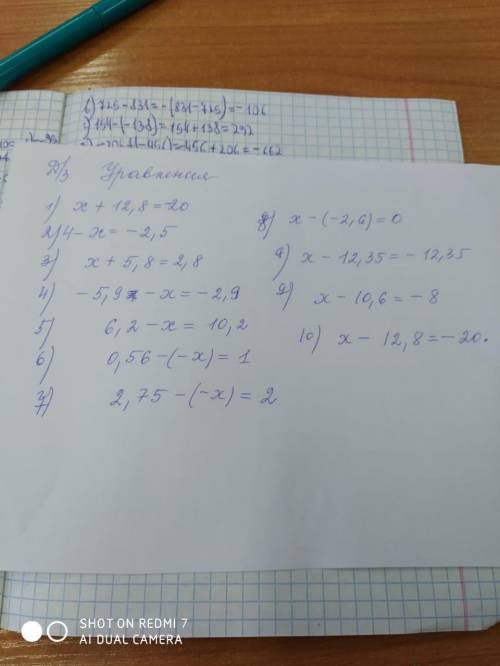 b) 725-831=-(831-725)=-106
154-(-138)=154+138=292
Д/з Уравнения
1) x + 12,8 = -20
2) 4 - x = -2,5
3) x + 5,8 = 2,8
4) -5,9 - x = -2,9
5) 6,2 - x = 10,2
6) 0,56 - (-x) = 1
7) 2,75 - (-x) = 2
8) x - (-2,6) = 0
9) x - 12,35 = -12,35
9) x - 10,6 = -8
10) x - 12,8 = -20.
SHOT ON REDMI 7
AI DUAL CAMERA